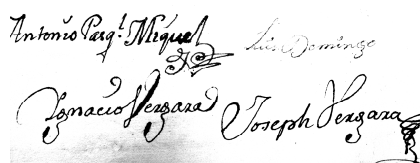 Antonio Pasql Miguel
Luis Domingo
Ygnacio Vergara
Joseph Vergara